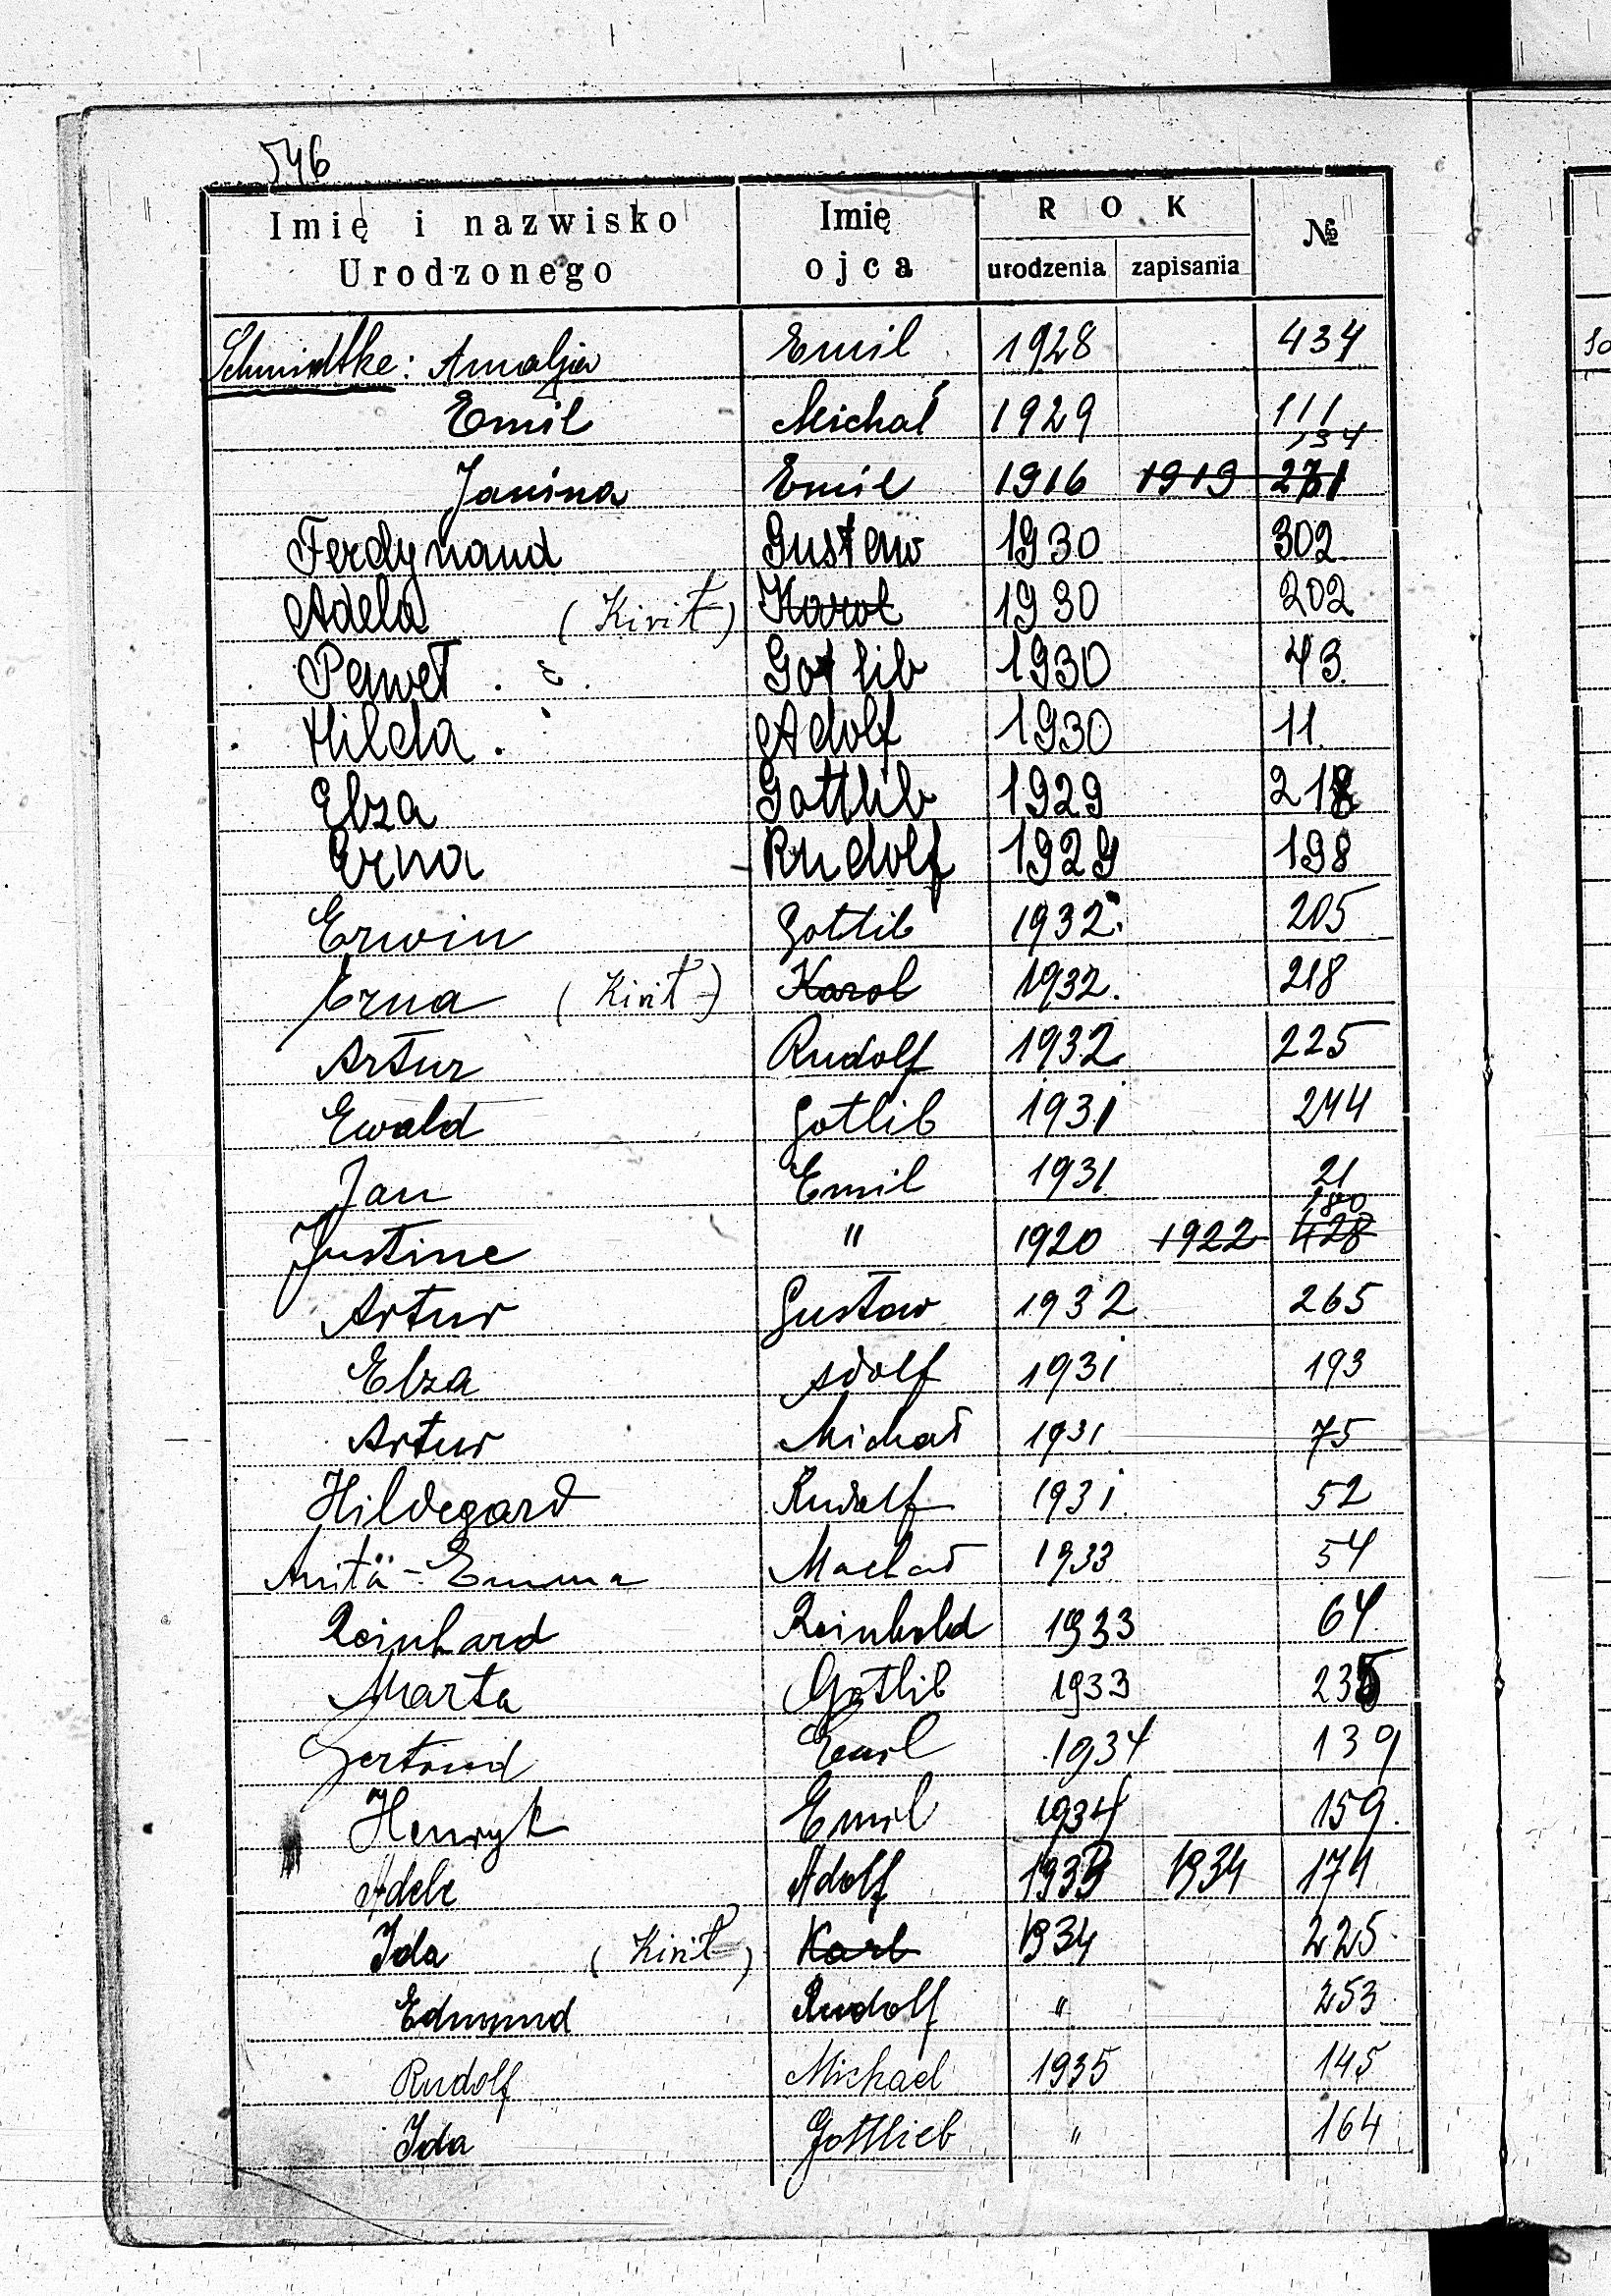 546
Imię i nazwisko Urodzonego Imię ojca ROK urodzenia zapisania №
Schmidtke: Amalja Emil 1928 434
Emil Michał 1929 111
134
Janina Emil 1916 1919 271
Ferdynand Gustaw 1930 302
Adela (Kirit) Karol 1930 202
Paweł Gotlib 1930 43
Hilda Adolf 1930 11
Elza Gottlib 1929 218
Erna Rudolf 1929 198
Erwin Gotlib 1932 205
Erna (Kirit) Karol 1932. 218
Artur Rudolf 1932 225
Ewald Gotlib 1931 244
Jan Emil 1931 21
180
Justine " 1920 1922 428
Artur Gustaw 1932 265
Elza Adolf 1931 193
Artur Michał 1931 75
Hildegard Rudolf 1931 52
Anita-Emma 1933 54
Reinhard Reinhold 1933 64
Marta Gotlib 1933 235
Gertrud Emil 1934 139
Henryk Emil 1934 159.
Adele Adolf 1933 1934 174
Ida (Kirit) Karl 1934 225
Edmund Rudolf " 253
Rudolf Michael 1935 145
Ida Gottlieb " 164